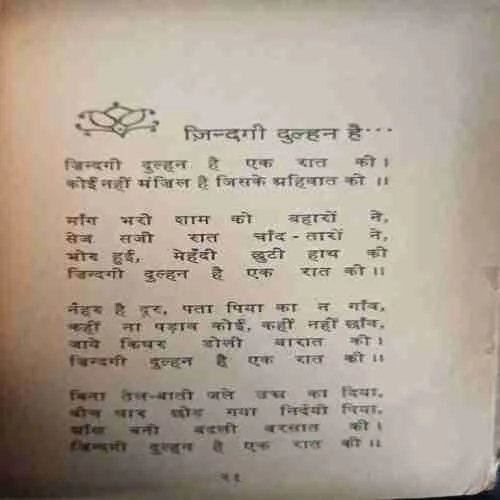 ज़िन्दगी दुल्हन है...
ज़िन्दगी दुल्हन है एक रात की।
कोई नहीं मंज़िल है जिसके अहिवात की॥
माँग भरी शाम को बहारों ने,
सेज सजी रात चाँद-तारों ने,
भोर हुई, मेहँदी छुटी हाथ की
ज़िन्दगी दुल्हन है एक रात की॥
नैहर है दूर, पता पिया का न गाँव,
कहीं ना पड़ाव कोई, कहीं नहीं छाँव,
जाये किधर डोली बारात की।
ज़िन्दगी दुल्हन है एक रात की॥
बिना तेल-बाती जले उम्र का दिया,
बीच धार छोड़ गया निर्दयी पिया,
आँख बनी बदली बरसात की।
ज़िन्दगी दुल्हन है एक रात की॥